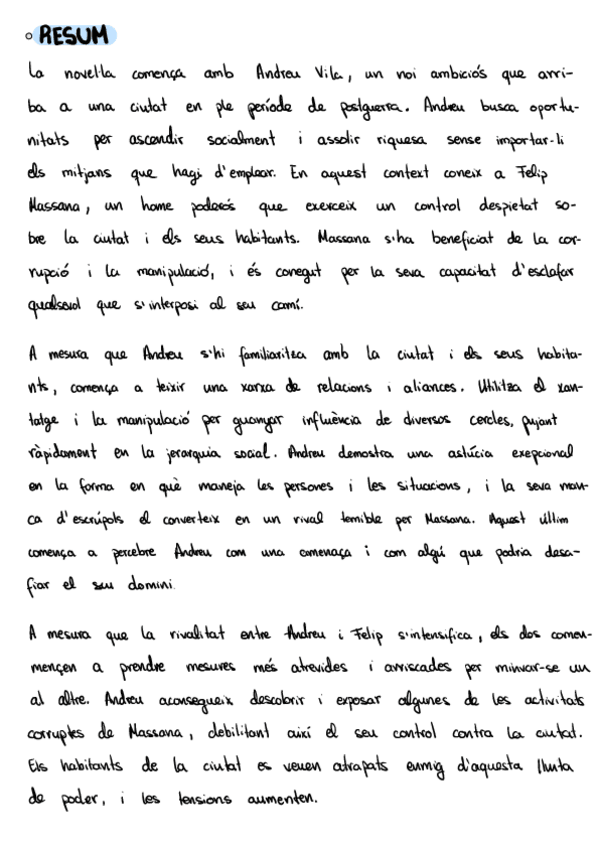 RESUM
La novel·la comença amb Andreu Vila, un noi ambiciós que arri-
ba a una ciutat en ple període de postguerra. Andreu busca oportu-
nitats per ascendir socialment i assolir riquesa sense importar-li
els mitjans que hagi d'emplear. En aquest context coneix a Felip
Massana, un home poderós que exerceix un control despietat so-
bre la ciutat i els seus habitants. Massana s'ha beneficiat de la cor-
rupció i la manipulació, i és conegut per la seva capacitat d'esclafar
qualsevol que s'interposi al seu camí.
A mesura que Andreu s'hi familiaritza amb la ciutat i els seus habita-
nts, comença a teixir una xarxa de relacions i aliances. Utilitza el xan-
tatge i la manipulació per guanyar influència de diversos cercles, pujant
ràpidament en la jerarquia social. Andreu demostra una astúcia exepcional
en la forma en què maneja les persones i les situacions, i la seva man-
ca d'escrúpols el converteix en un rival temible per Massana. Aquest últim
comença a percebre Andreu com una amenaça i com algú que podria desa-
fiar el seu domini.
A mesura que la rivalitat entre Andreu i Felip s'intensifica, els dos comen-
mençen a prendre mesures més atrevides i arriscades per minvar-se un
al altre. Andreu aconsegueix descobrir i exposar algunes de les activitats
corruptes de Massana, debilitant així el seu control contra la ciutat.
Els habitants de la ciutat es veuen atrapats enmig d'aquesta lluita
de poder, i les tensions augmenten.